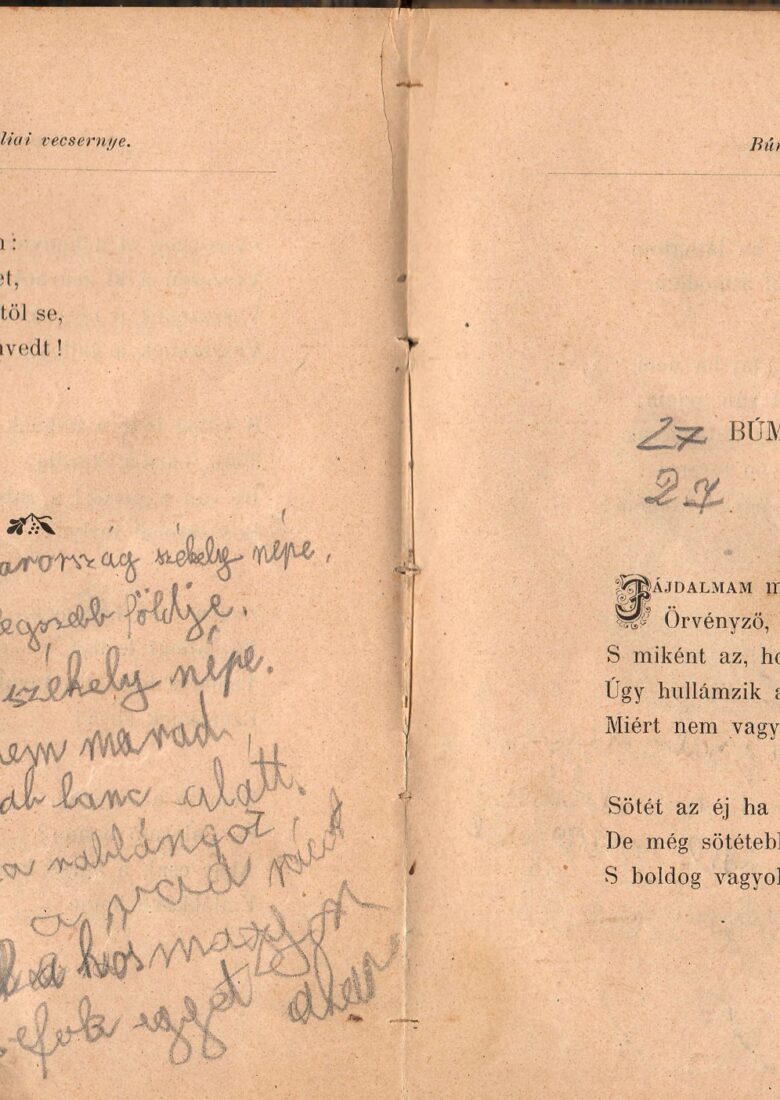 liai vecsernye.
n:
et,
től se,
nvedt!
arország székely népe,
legszebb földje.
székely népe.
nem marad
ab lanc alatt.
a rablángoz
a vad rácot
a hos magyar
egyet
Bú
27 BÚM
27
FÁJDALMAM m
Örvényző,
S miként az, ho
Úgy hullámzik a
Miért nem vagy
Sötét az éj ha
De még sötétebb
S boldog vagyok